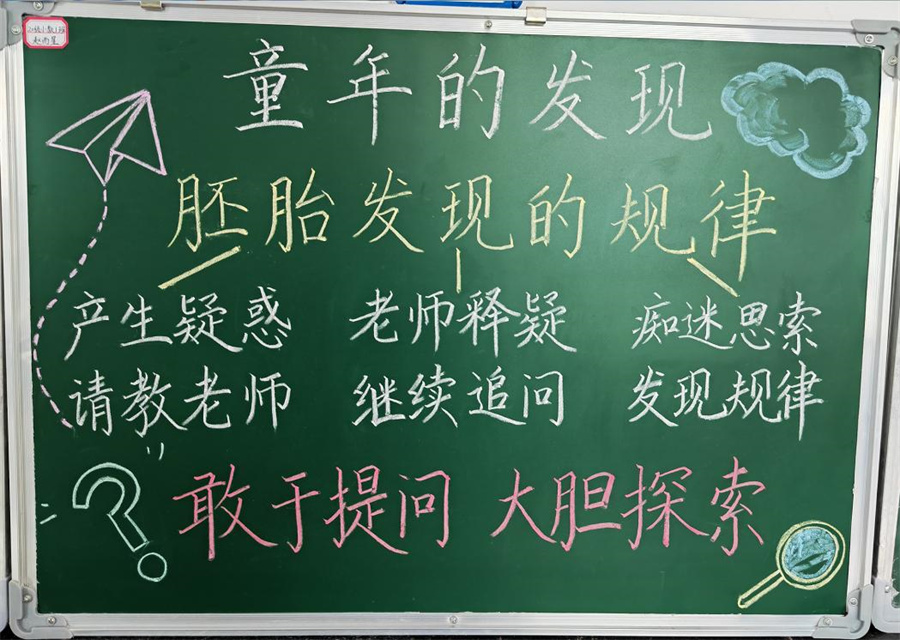 童年的发现
胚胎发现的规律
产生疑惑 老师释疑 痴迷思索
请教老师 继续追问 发现规律
敢于提问 大胆探索
?